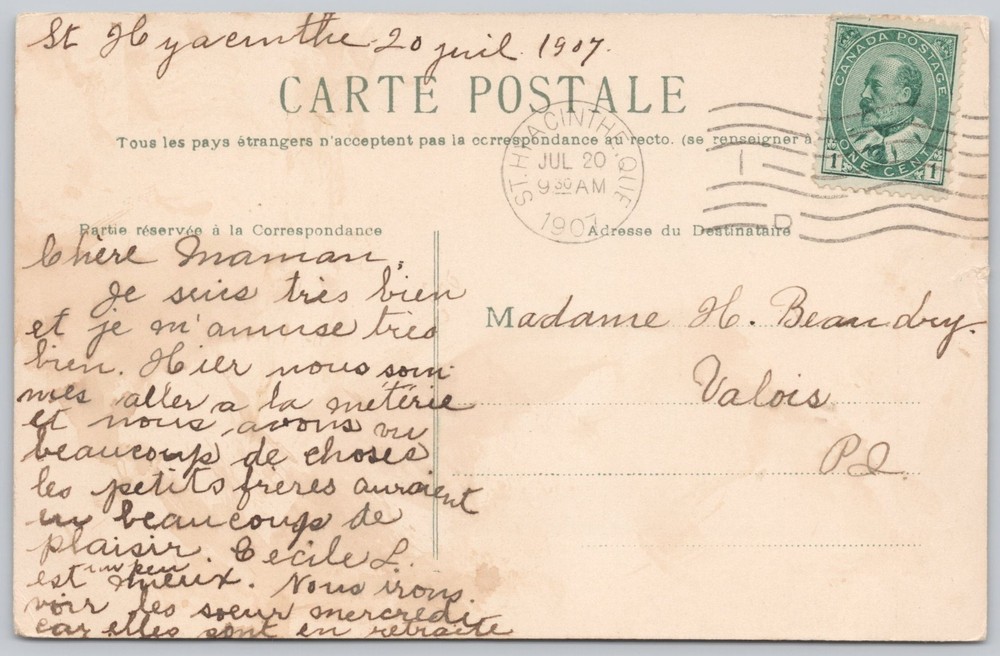 St Hyacinthe 20 juil. 1907.
CARTE POSTALE
Tous les pays étrangers n'acceptent pas la correspondance au recto. (se renseigner à
ST. HYACINTHE QUE
JUL 20
9 30 AM
1907
CANADA POSTAGE
1 ONE CENT 1
Partie réservée à la Correspondance
Adresse du Destinataire
Chère Maman,
Je suis très bien
et je m'amuse très
bien. Hier nous som-
mes aller a la métérie
et nous avons vu
beaucoup de choses
les petits frères auraient
eu beaucoup de
plaisir. Cecile L.
est un peu mieux. Nous irons
voir les soeur mercredi
car elles sont en retraite
Madame H. Beaudry.
Valois
PQ